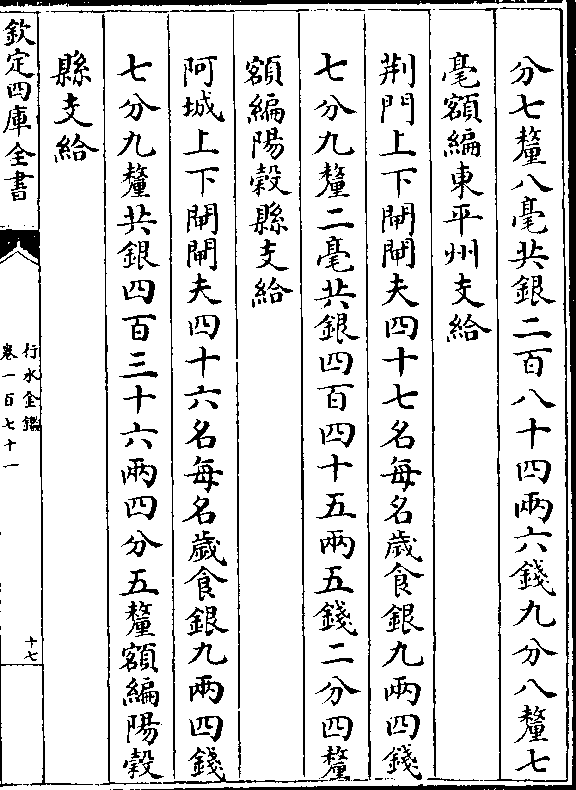 分七釐八毫共銀二百八十四兩六錢九分八釐七
毫額編東平州支給
荆門上下閘閘夫四十七名每名歲食銀九兩四錢
七分九釐二毫共銀四百四十五兩五錢二分四釐
額編陽穀縣支給
阿城上下閘閘夫四十六名每名歲食銀九兩四錢
七分九釐共銀四百三十六兩四分五釐額編陽穀
縣支給
欽定四庫全書
行水金鑑
卷一百七十一
十七